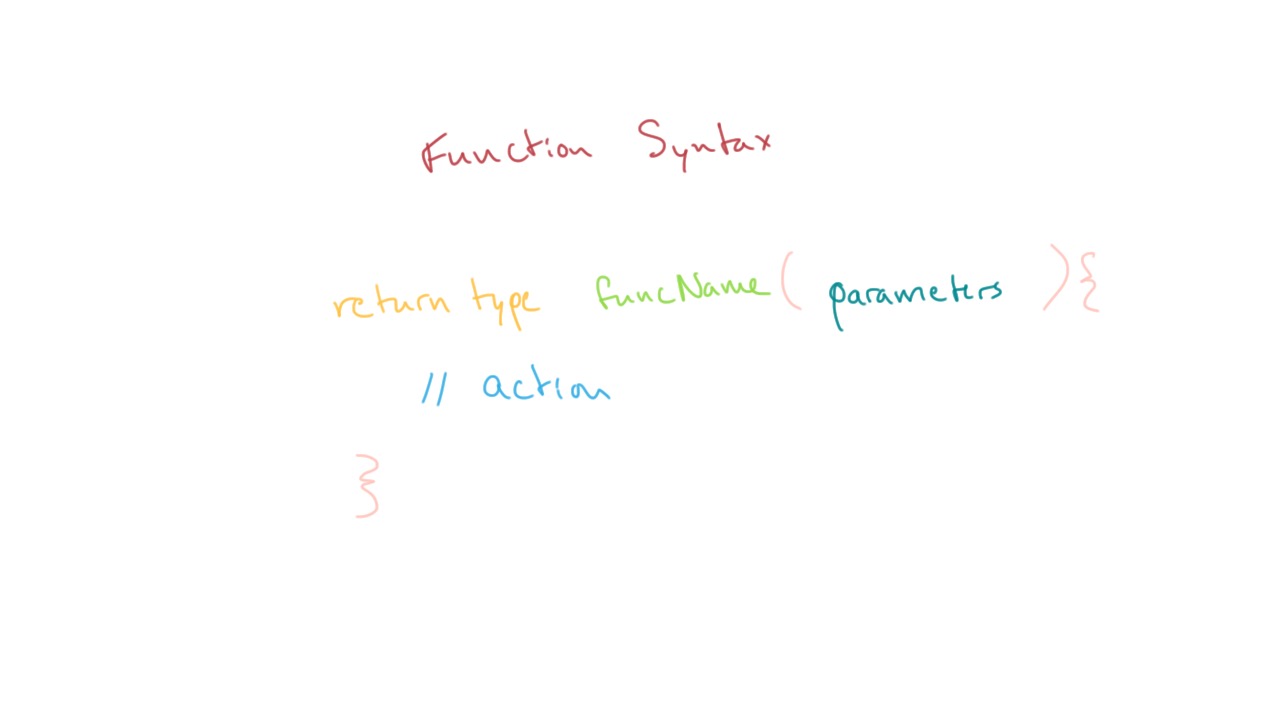 Function Syntax
return type funcName( parameters ){
// action
}